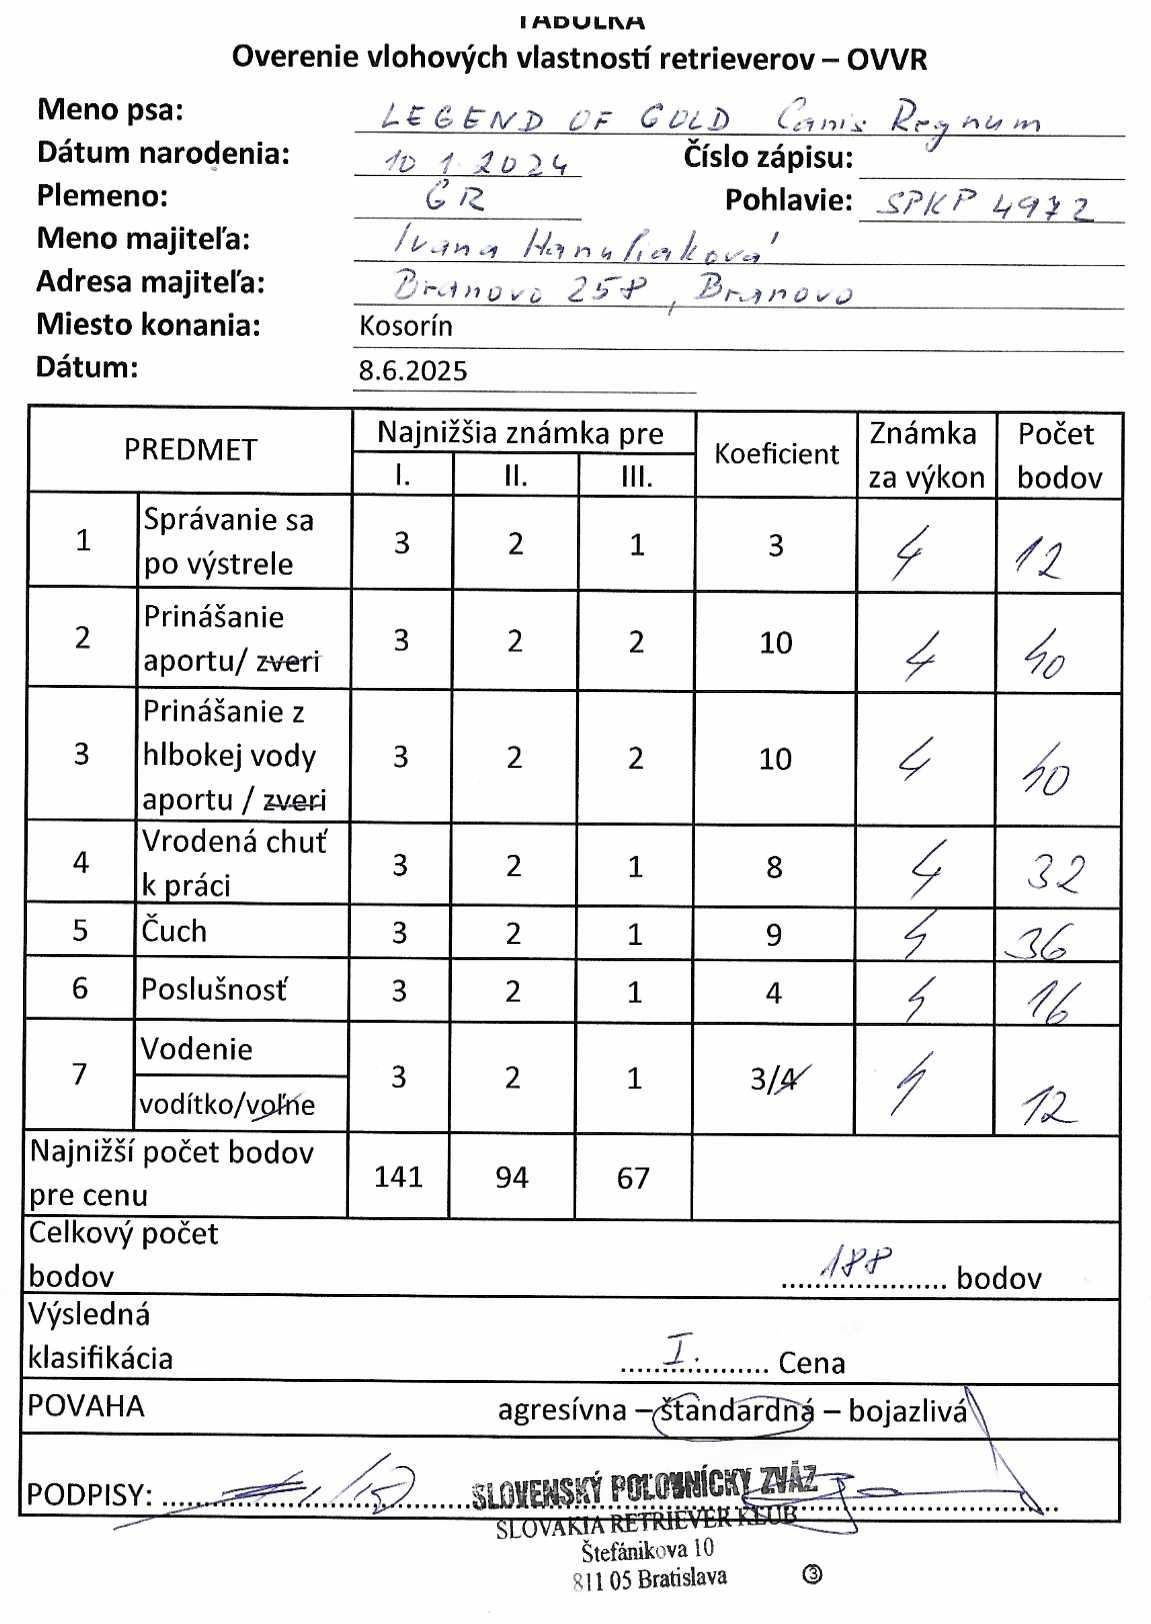 TABUĽKA
Overenie vlohových vlastností retrieverov – OVVR
Meno psa: LEGEND OF GOLD Canis Regnum
Dátum narodenia: 10 1. 2024 Číslo zápisu:
Plemeno: GR Pohlavie: SPKP 4972
Meno majiteľa: Ivana Hanuliaková
Adresa majiteľa: Branovo 258, Branovo
Miesto konania: Kosorín
Dátum: 8.6.2025
PREDMET Najnižšia známka pre Koeficient Známka za výkon Počet bodov
I. II. III.
1 Správanie sa po výstrele 3 2 1 3 4 12
2 Prinášanie aportu/ zveri 3 2 2 10 4 40
3 Prinášanie z hlbokej vody aportu / zveri 3 2 2 10 4 40
4 Vrodená chuť k práci 3 2 1 8 4 32
5 Čuch 3 2 1 9 4 36
6 Poslušnosť 3 2 1 4 4 16
7 Vodenie vodítko/voľne 3 2 1 3/4 4 12
Najnižší počet bodov pre cenu 141 94 67
Celkový počet bodov 188 bodov
Výsledná klasifikácia I. Cena
POVAHA agresívna – štandardná – bojazlivá
PODPISY:
SLOVENSKÝ POĽOVNÍCKY ZVÄZ
SLOVAKIA RETRIEVER KLUB
Štefánikova 10
811 05 Bratislava 3